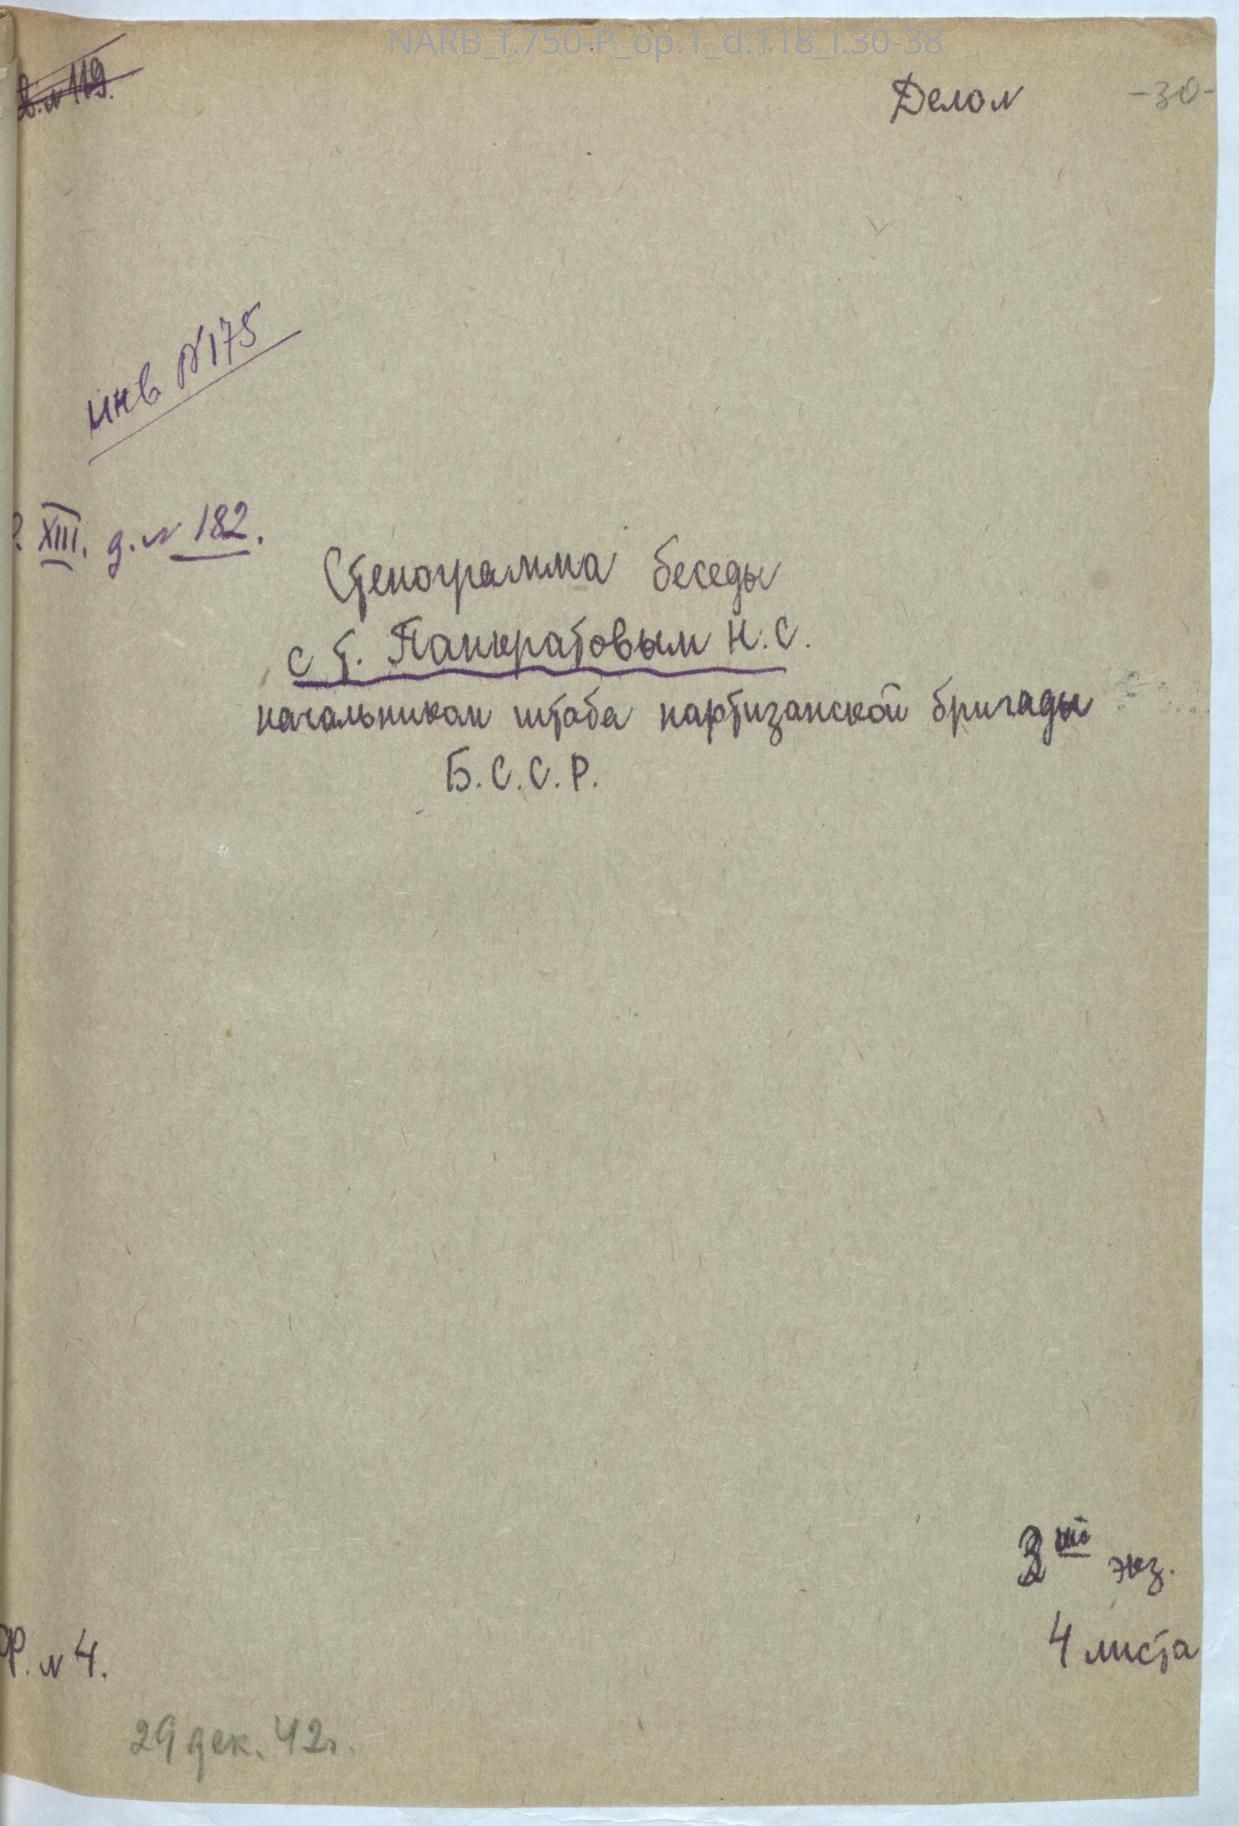 NARB_f.750-P_op.1_d.118_l.30-38
д. № 119.
Дело №
-30-
инв №175
Р. XIII. д. № 182.
Стенограмма беседы
с т. Панкратовым Н.С.
начальником штаба партизанской бригады
Б.С.С.Р.
3ий экз.
4 листа
Ф. № 4.
29 дек. 42г.